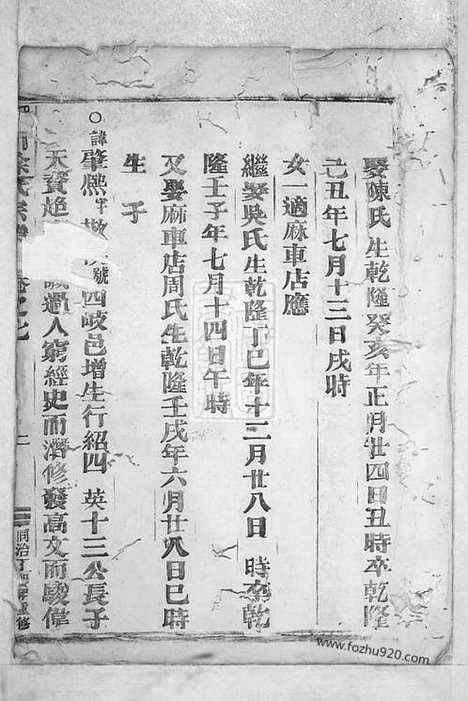 娶陳氏生乾隆癸亥年正月廿四日丑時卒乾隆
己丑年七月十三日戌時
女一適麻車店應
繼娶吳氏生乾隆丁巳年十二月廿八日 時卒乾
隆壬子年七月十四日午時
又娶麻車店周氏生乾隆壬戌年六月廿八日巳時
生 子
○諱肇熙字 號四岐邑增生行紹四 英十三公長子
天資 過人窮經史而潛修發高文而駿偉
氏宗譜 卷之七
同治 重修
www.fozhu920.com